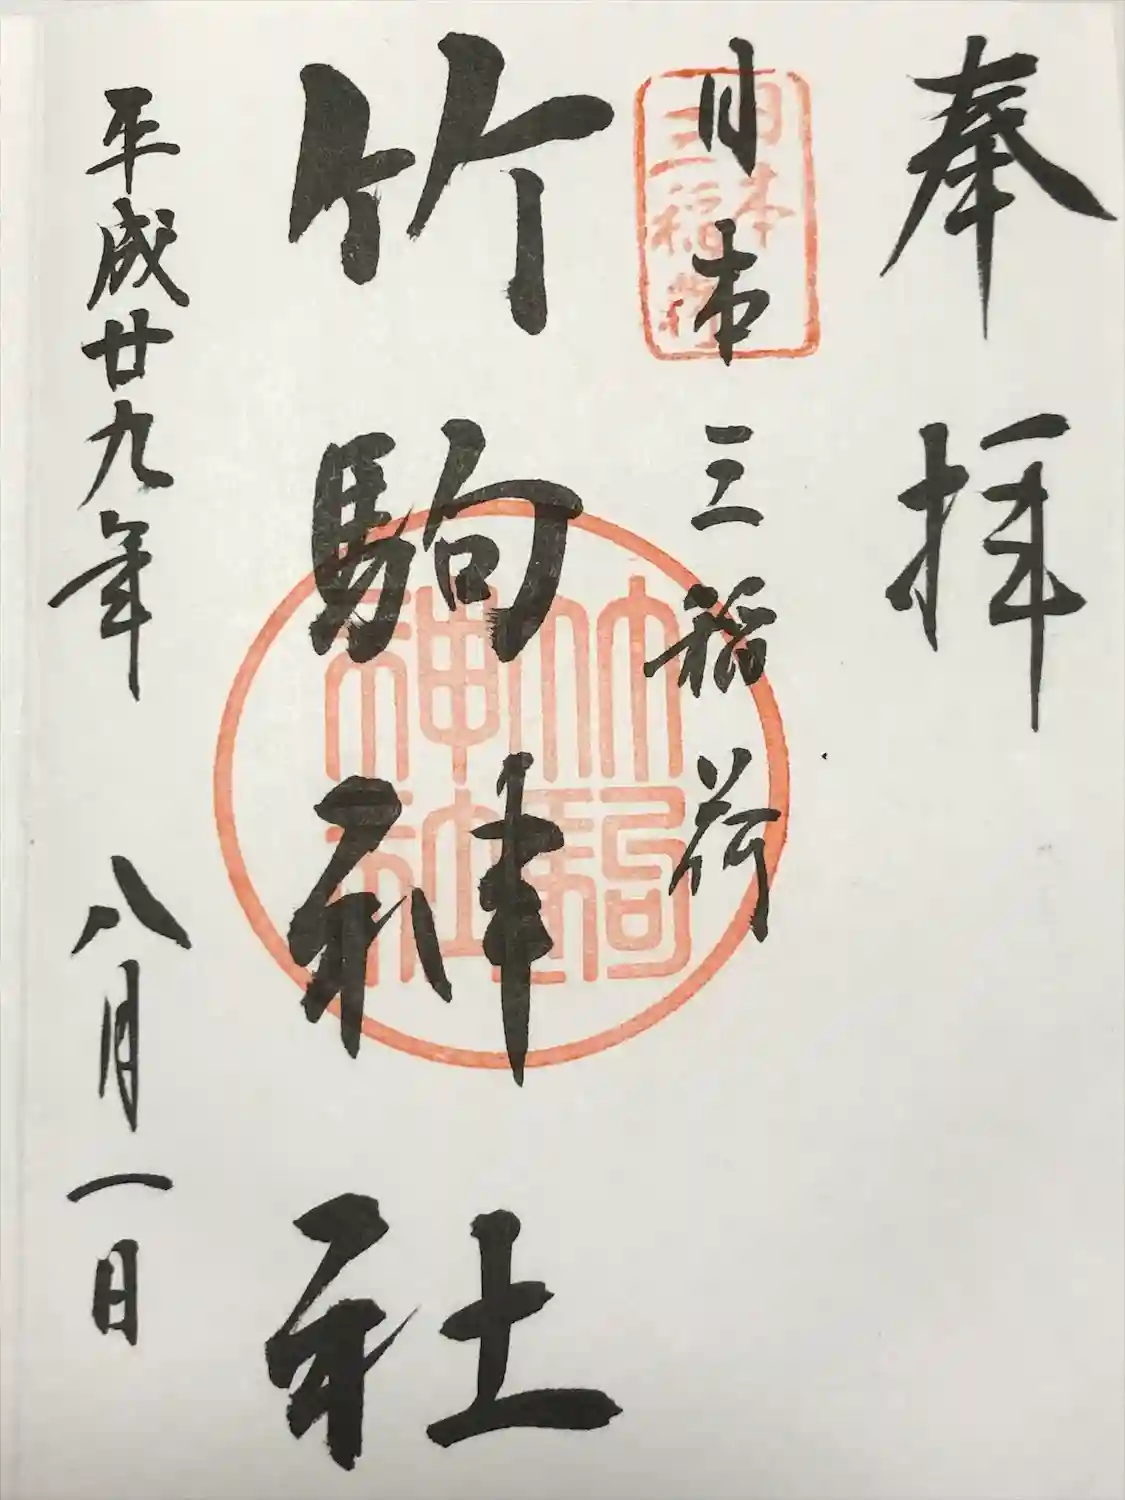 奉拝
日本三稲荷
日本
三稲荷
竹駒神社
竹駒
神社
平成廿九年 八月一日